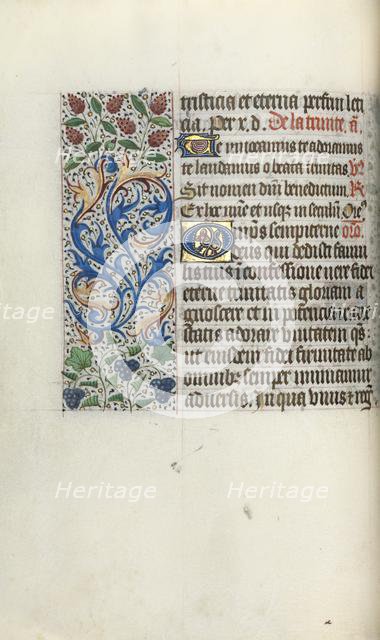 tristicia et eterna perfrui leti
cia. Per x. d. De la trinite. a.
Te invocamus te adoramus
te laudamus o beata trinitas.
Sit nomen dni benedictum.
Ex hoc nunc et usque in seculu.
sempiterne
deus qui dedisti famu
lis tuis i confessione vere fidei
eterne trinitatis gloriam a
gnoscere et in potencia
statis adorare unitatem qs.
ut eiusdem fidei firmitate ab
omnibz semper muniamur
adversis. In qua vivis et reg
Heritage
Heritage
Heritage
Heritage
Heritage
Heritage